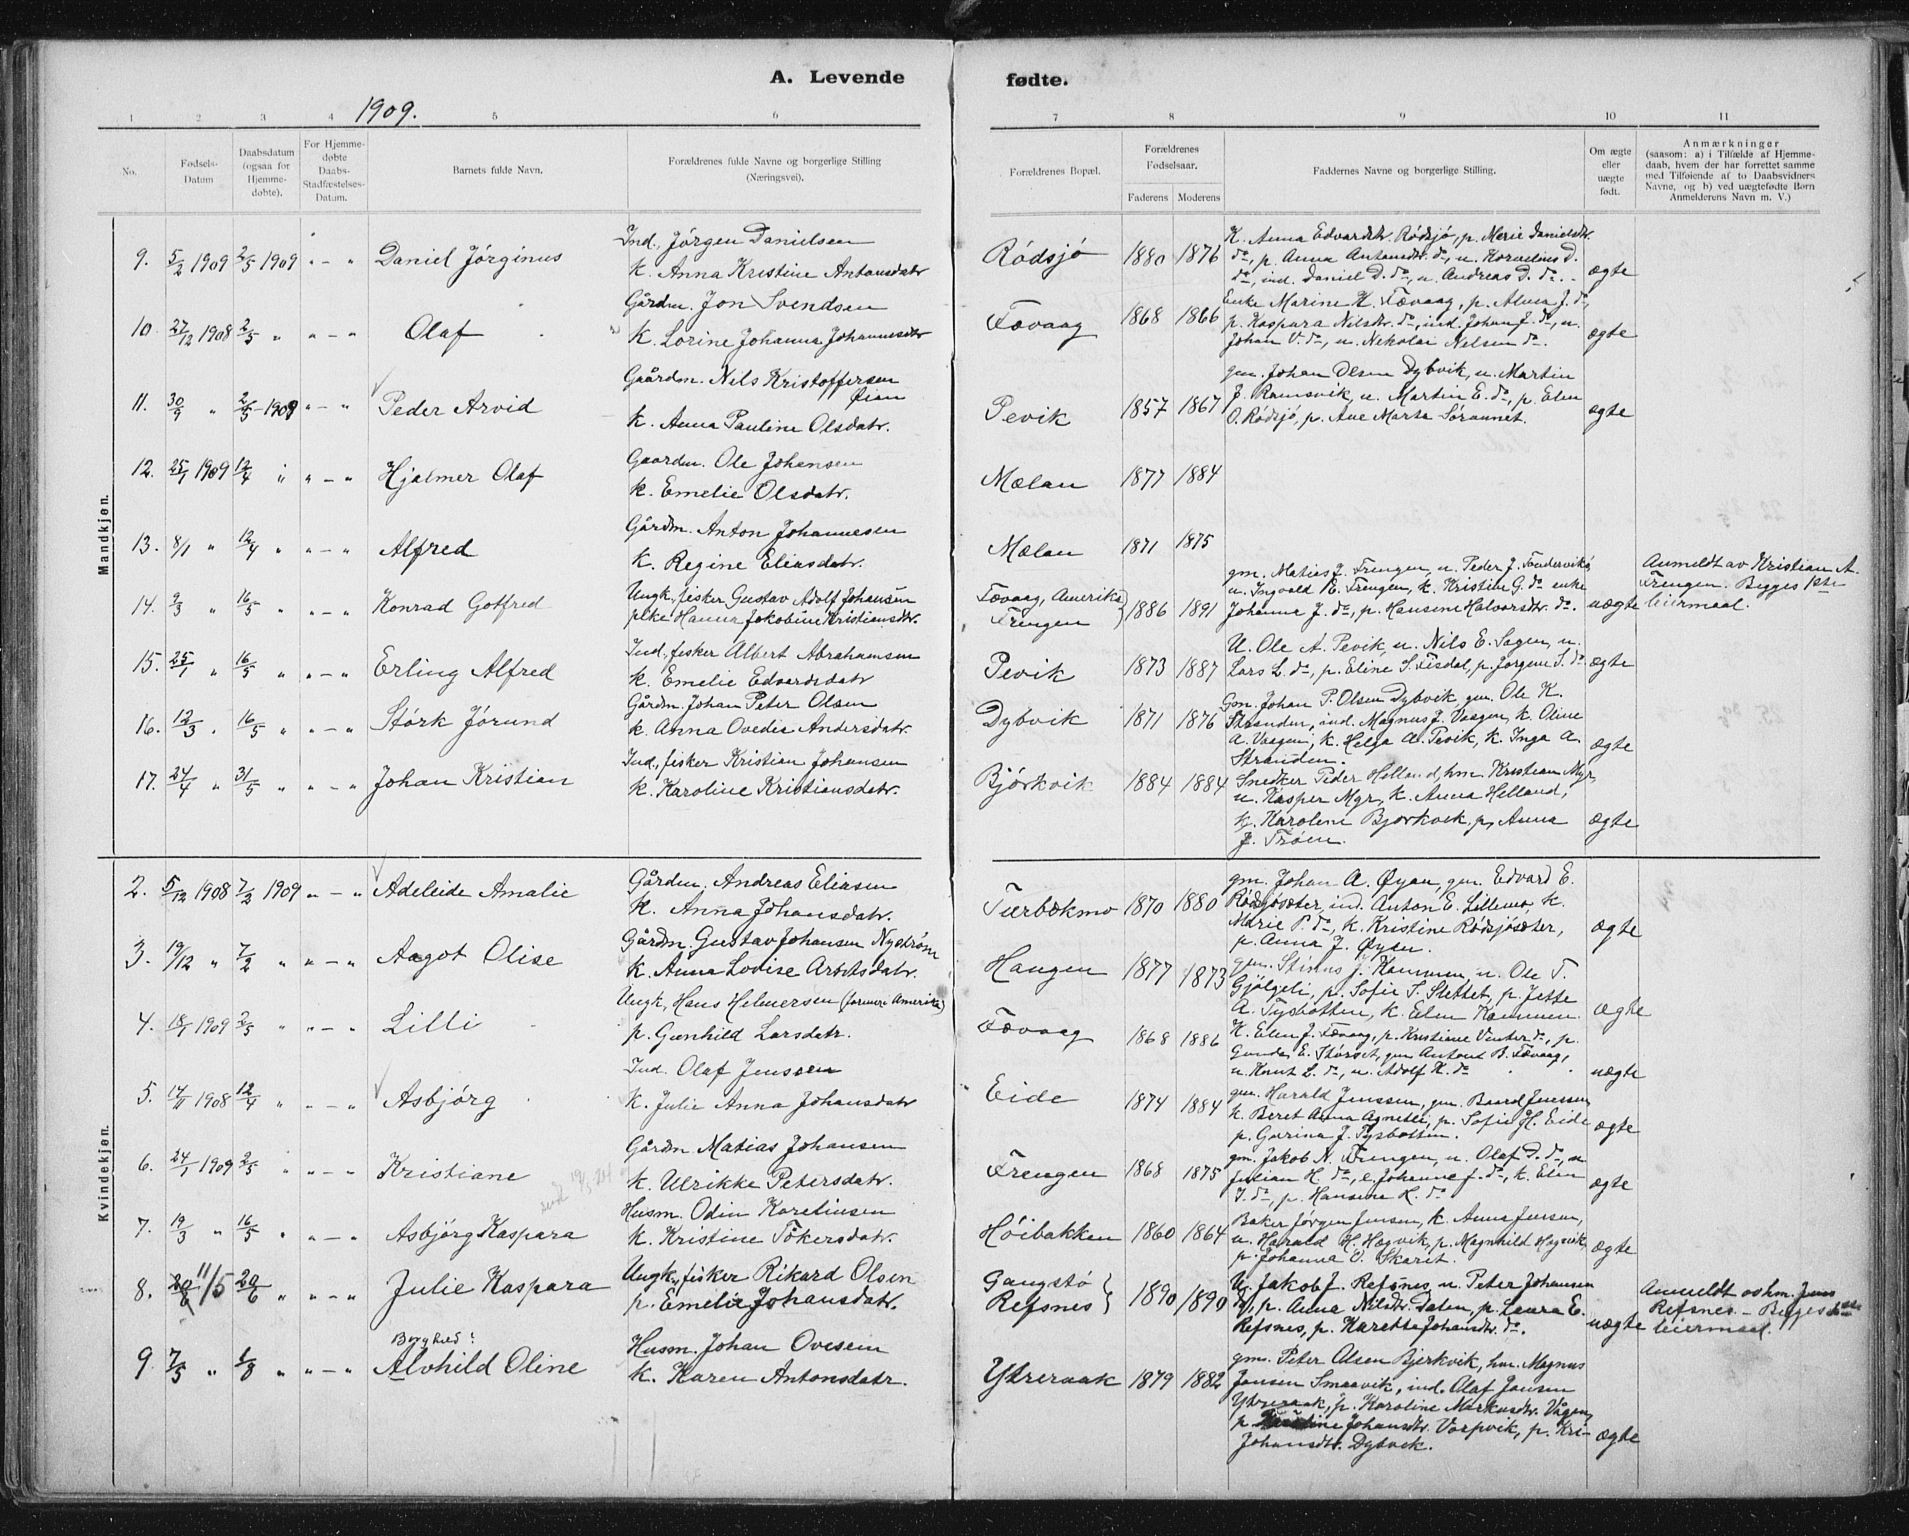 A. Levende fødte.
1909.
1 2 3 4 5 6 7 8 9 10 11
No.
Fødsels-Datum
Daabsdatum (ogsaa for Hjemmedøbte).
For Hjemmedøbte Daabs-Stadfæstelses-Datum.
Barnets fulde Navn.
Forældrenes fulde Navne og borgerlige Stilling (Næringsvei).
Forældrenes Bopæl.
Forældrenes Fødselsaar.
Faderens Moderens
Faddernes Navne og borgerlige Stilling.
Om ægte eller uægte født.
Anmærkninger
(saasom: a) i Tilfælde af Hjemmedaab, hvem der har forrettet samme med Tilføiende af to Daabsvidners Navne, og b) ved uægtefødte Børn Anmelderens Navn m. V.)
Mandkjøn.
9. 5/2 1909 2/5 1909 „ – „ Daniel Jørginus
Ind. Jørgen Danielsen
k. Anna Kristine Antonsdatr
Rødsjø 1880 1876
K. Anna Edvardsdr. Rødsjø, p. Marie Danielsdr.
do, p. Anna Antonsdr. do, u. Kornelius D.
do, ind. Daniel D. do, u. Andreas D. do.
ægte
10. 27/12 1908 2/5 „ „ – „ Olaf
Gårdm. Jon Svendsen
k. Lorine Johanna Johannesdr
Fævaag 1868 1866
Enke Marine K. Fævaag, p. Alma J. do,
p. Kaspara Nilsdr. do, ind. Johan J. do, u.
Johan V. do, u. Nikolai Nelsen do.
ægte
11. 30/9 „ 2/5 1909 „ – „ Peder Arvid
Gaardm. Nils Kristoffersen
Øien
k. Anna Pauline Olsdatr.
Pevik 1857 1867
gm. Johan Olsen Dybvik, u. Martin
J. Ramsvik, u. Martin E. do, p. Elen
O. Rødsjø, p. Ane Marta Sørannet.
ægte
12. 25/1 1909 12/4 „ „ – „ Hjalmer Olaf
Gaardm. Ole Johansen
k. Emelie Olsdatr.
Mælan 1877 1884
13. 8/1 „ 12/4 „ „ – „ Alfred
Gårdm. Anton Johannesen
k. Regine Eliasdatr.
Mælan 1871 1875
14. 9/3 „ 16/5 „ „ – „ Konrad Gotfred
Ungk., fisker Gustav Adolf Johansen
pike Hanna Jokobine Kristiansdr.
Fævaag, Amerika
Frengen 1886 1891
gm. Matias J. Frengen, u. Peder J. Sundervik,
u. Ingvald E. Frengen, k. Kristine G. do enke
Johanna J. do, p. Hansine Halvorsdr. do.
uægte
Anmeldt av Kristian A.
Frengen. Begges 1ste
leiermaal.
15. 25/1 „ 16/5 „ „ – „ Erling Alfred
Ind., fisker Albert Abrahamsen
k. Emelie Edvardsdatr
Pevik 1873 1887
U. Ole A. Pevik, u. Nils E. Sagen, u.
Lars L. do, p. Eline S. Fisdal, p. Jørgine S. do
ægte
16. 12/3 „ 16/5 „ „ – „ Størk Jørund
Gårdm. Johan Peter Olsen
k. Anna Ovedia Andersdatr.
Dybvik 1871 1876
Gm. Johan P. Olsen Dybvik, gm. Ole K.
Stranden, ind. Magnus J. Vaagen, k. Oline
A. Vaagen, k. Helga A. Pevik, k. Inga A.
Stranden.
ægte
17. 24/4 „ 31/5 „ „ – „ Johan Kristian
Ind., fisker Kristian Johansen
k. Karoline Kristiansdatr.
Bjørkvik 1884 1884
Snedker Peder Helland, hm. Kristian Myr,
u. Kasper Myr, k. Anna Helland,
k. Karoline Bjørkvik, p. Anna
J. Trøen.
ægte
Kvindekjøn.
2. 5/12 1908 7/2 1909 „ – „ Adeleide Amalie
Gårdm. Andreas Eliasen
k. Anna Johansdatr.
Tiurbækmo 1870 1880
gm. Johan A. Øyan, gm. Edvard E.
Rødsjøsæter, ind. Anton E. Lillemo, k.
Marie P. do, k. Kristine Rødsjøsæter,
p. Anna J. Øyan.
ægte
3. 19/12 „ 7/2 „ „ – „ Aagot Olise
Gårdm. Gustav Johansen Nystrøm
k. Anna Lovise Arntsdatr.
Haugen 1877 1873
gm. Stinus J. Kammen, u. Ole T.
Gjølgeli, p. Sofie S. Slettet, p. Jette
A. Tysbotten, k. Elen Kammen.
ægte
4. 18/1 1909 2/5 „ „ – „ Lilli
Ungk. Hans Helmersen (formere Amerika)
p. Gunhild Larsdatr.
Fævaag 1868 1886
K. Elen J. Fævaag, p. Kristiane Vinter do, p.
Gunda E. Størset, gm Antont B. Fævaag,
u. Knut L. do, u. Adolf K. do
uægte
5. 14/11 1908 12/4 „ „ – „ Asbjørg
Ind. Olaf Jenssen
k. Julie Anna Johansdatr
Eide 1874 1884
gm. Harald Jenssen, gm. Baard Jenssen,
k. Beret Anna Agneta, p. Sofie H. Eide
p. Gurina J. Tysbotten.
ægte
6. 24/1 1909 2/5 „ „ – „ Kristiane
Gårdm Matias Johansen
k. Ulrikke Petersdatr.
Frengen 1868 1875
gm. Jakob N. Frengen, u. Olaf D. do, u
Julian H. do, e. Johanne J. do, k. Elen
J. do, p. Hansine K. do
ægte
7. 19/3 „ 16/5 „ „ – „ Asbjørg Kaspara
Husm. Odin Koreliusen
k. Kristine Tøkersdatr.
Høibakken 1860 1864
Baker Jørgen Jensen, k. Anna Jensen,
u. Harald H. Hagvik, p. Magnhild Hagvik,
p. Johanna O. Skarit.
ægte
8. 11/5 20/6 „ „ – „ Julie Kaspara
Ungk., fisker Rikard Olsen
p. Emelie Johansdatr.
Gangstø
Refsnes 1890 1890
U. Jakob J. Refsnes, u. Peter Johansen
do, p. Anna Nilsdr. Dalen, p. Laura E.
Refsnes, p. Karette Johansdr. do.
uægte
Anmeldt av hm. Jens
Refsnes – Begges 1ste
leiermaal.
Borghild?
9 7/5 „ 1/8 „ „ – „ Alvhild Oline
Husm. Johan Ovesen
k. Karen Antonsdatr.
Ytreraak 1879 1882
gm. Peter Olsen Bjerkvik, hm. Magnus
Jansen Smaavik, ind. Olaf Jansen
Ytreraak, p. Karoline Markusdr. Vågan,
p. Johansdr. Vorpvik, p. Kri-
Johansdr. Dybvik.
ægte